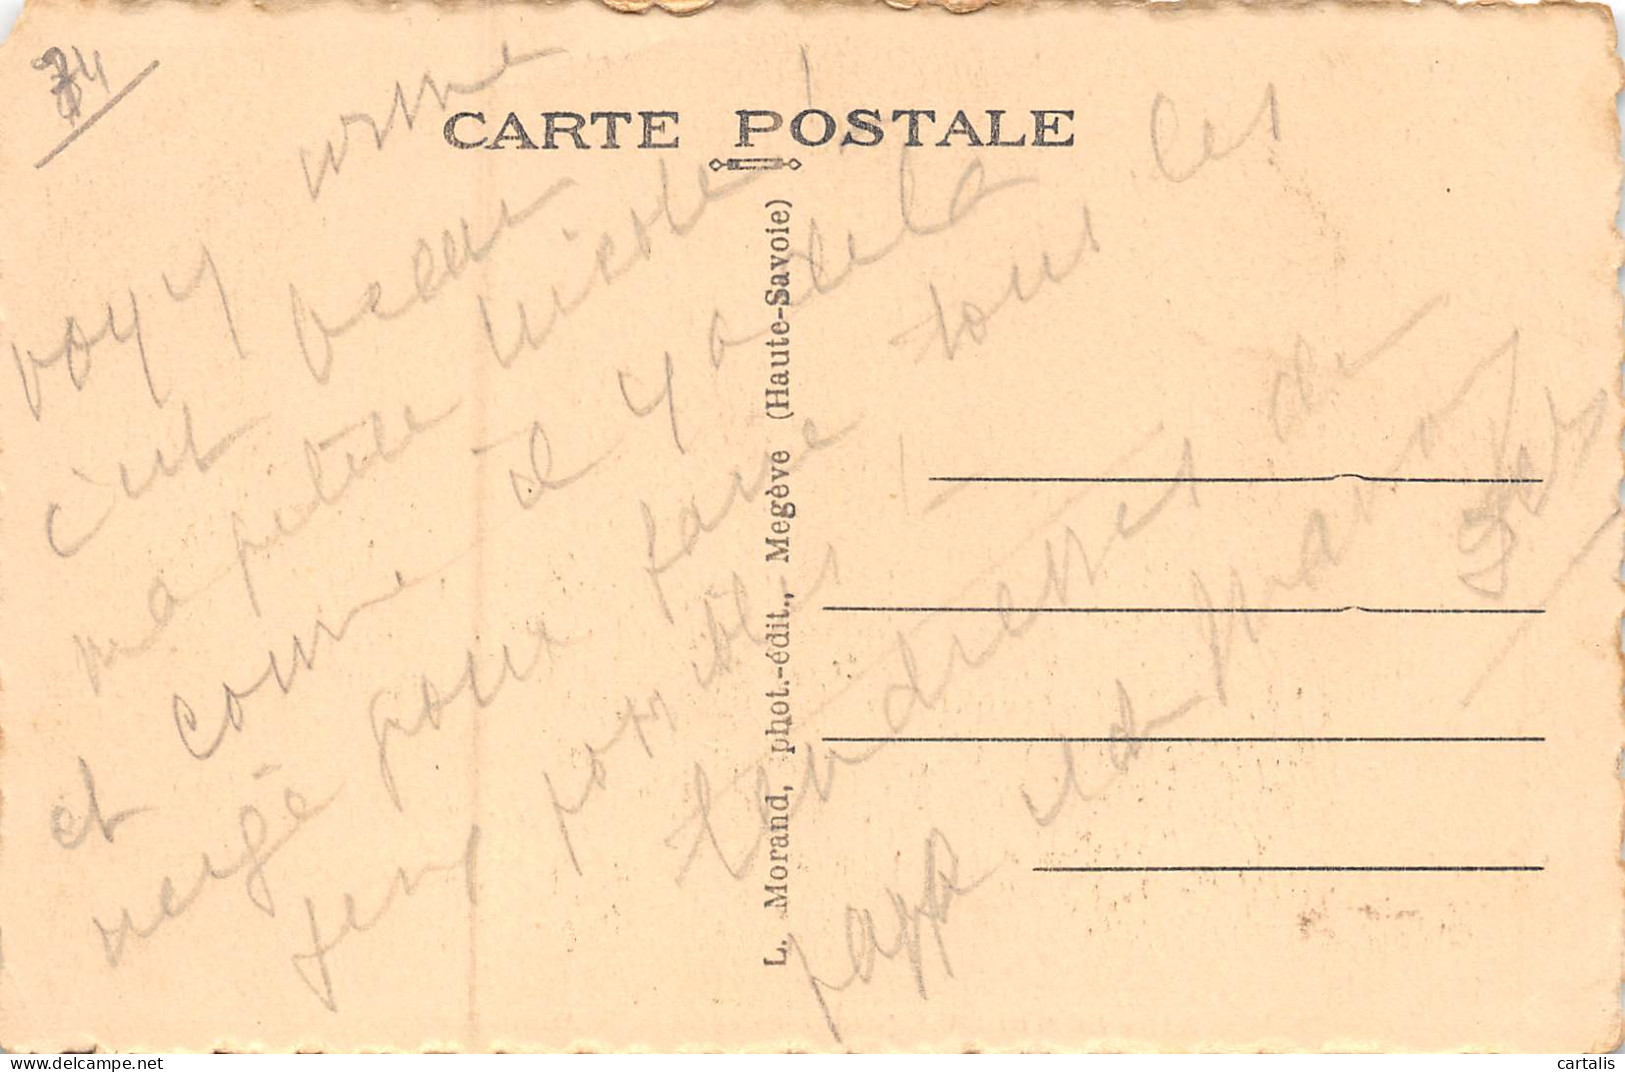 74
CARTE POSTALE
L. Morand, phot.-édit., Megève (Haute-Savoie)
voy comme
c'est beau
ma petite Nicole
et comme il y a de la
neige pour faire tous les
possibles
tendresses de
papa et de maman
cartalis